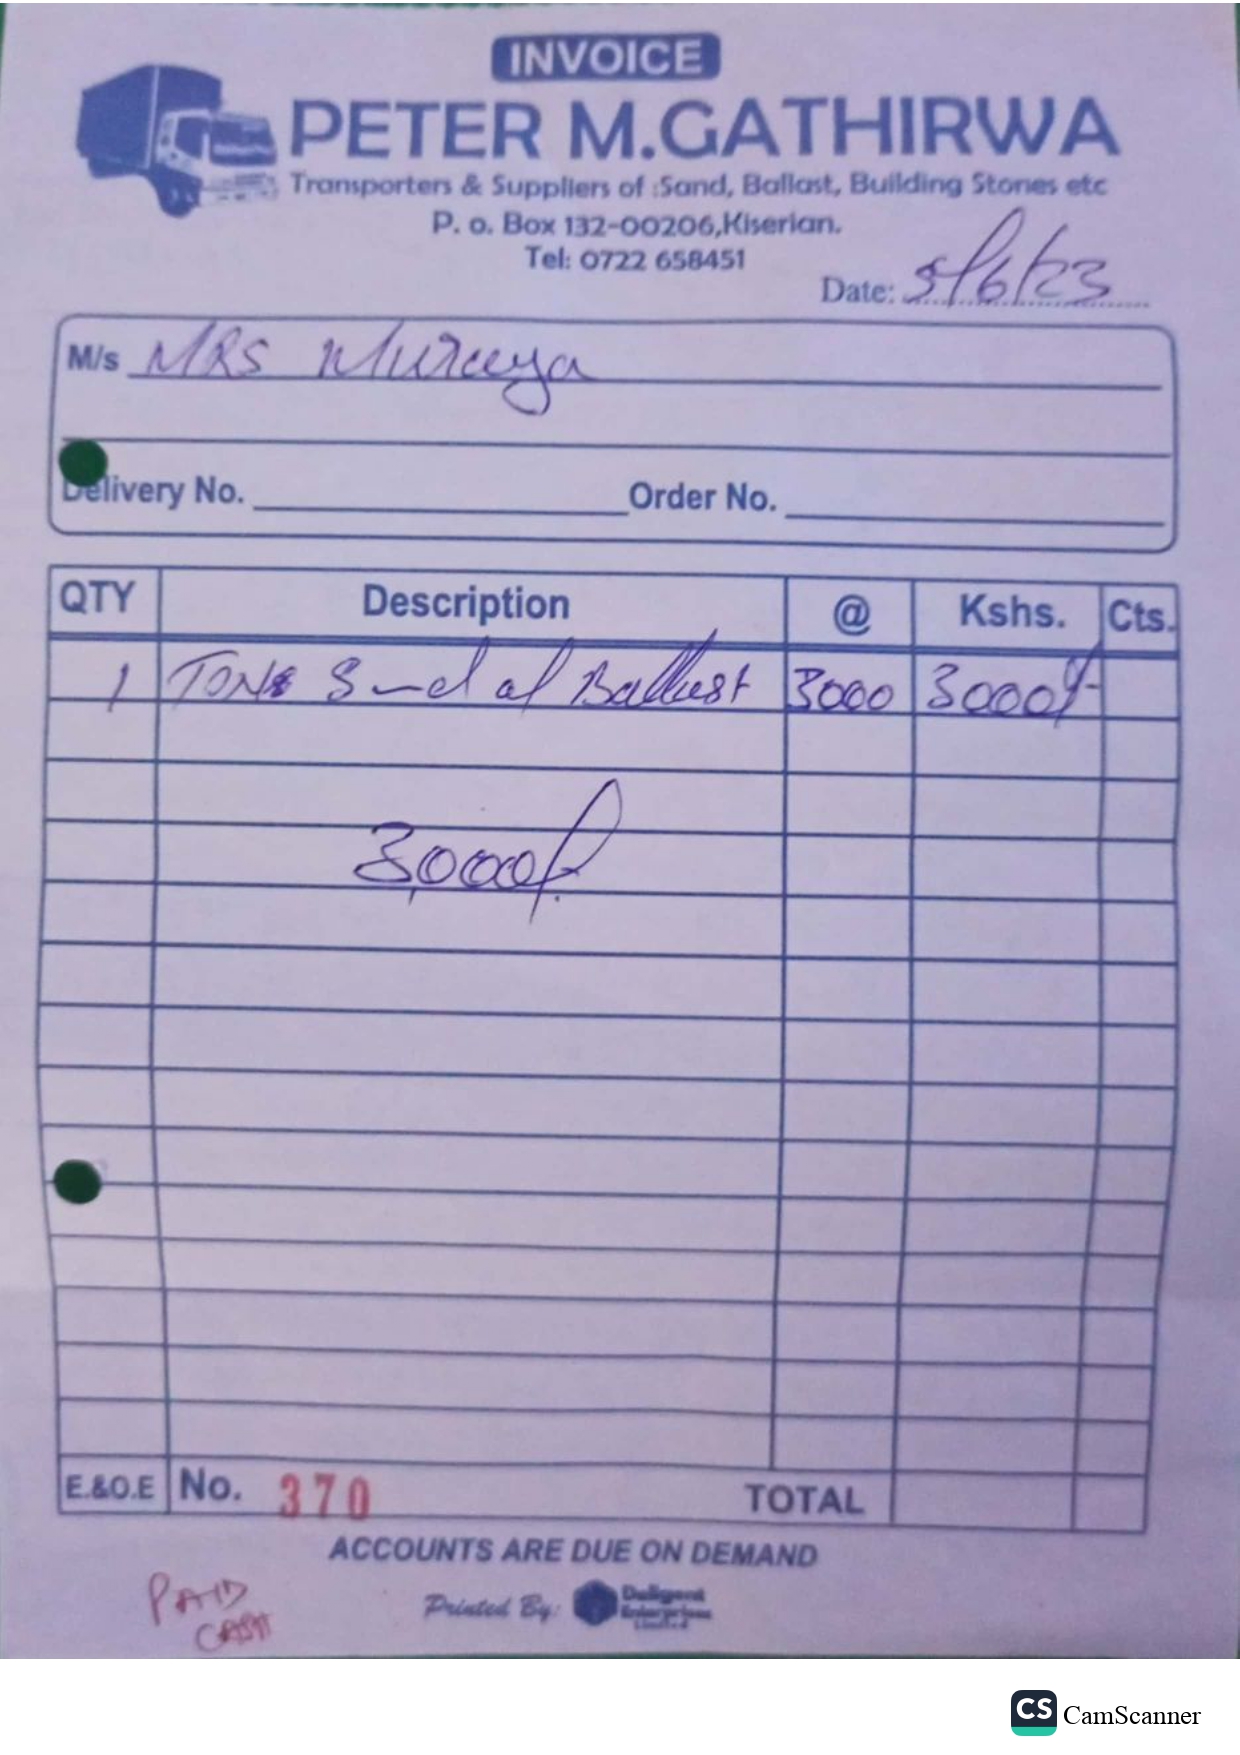 INVOICE
PETER M.GATHIRWA
Transporters & Suppliers of :Sand, Ballast, Building Stones etc
P. o. Box 132-00206,Kiserian.
Tel: 0722 658451
Date: 5/6/23
M/s MRS Muruya
Delivery No. Order No.
QTY Description @ Kshs. Cts.
1 TONE of Ballast 3000 3000/-
3,000/-
E.&O.E No. 370 TOTAL
ACCOUNTS ARE DUE ON DEMAND
Printed By: Enterprises Limited
PAID
CASH
CS CamScanner